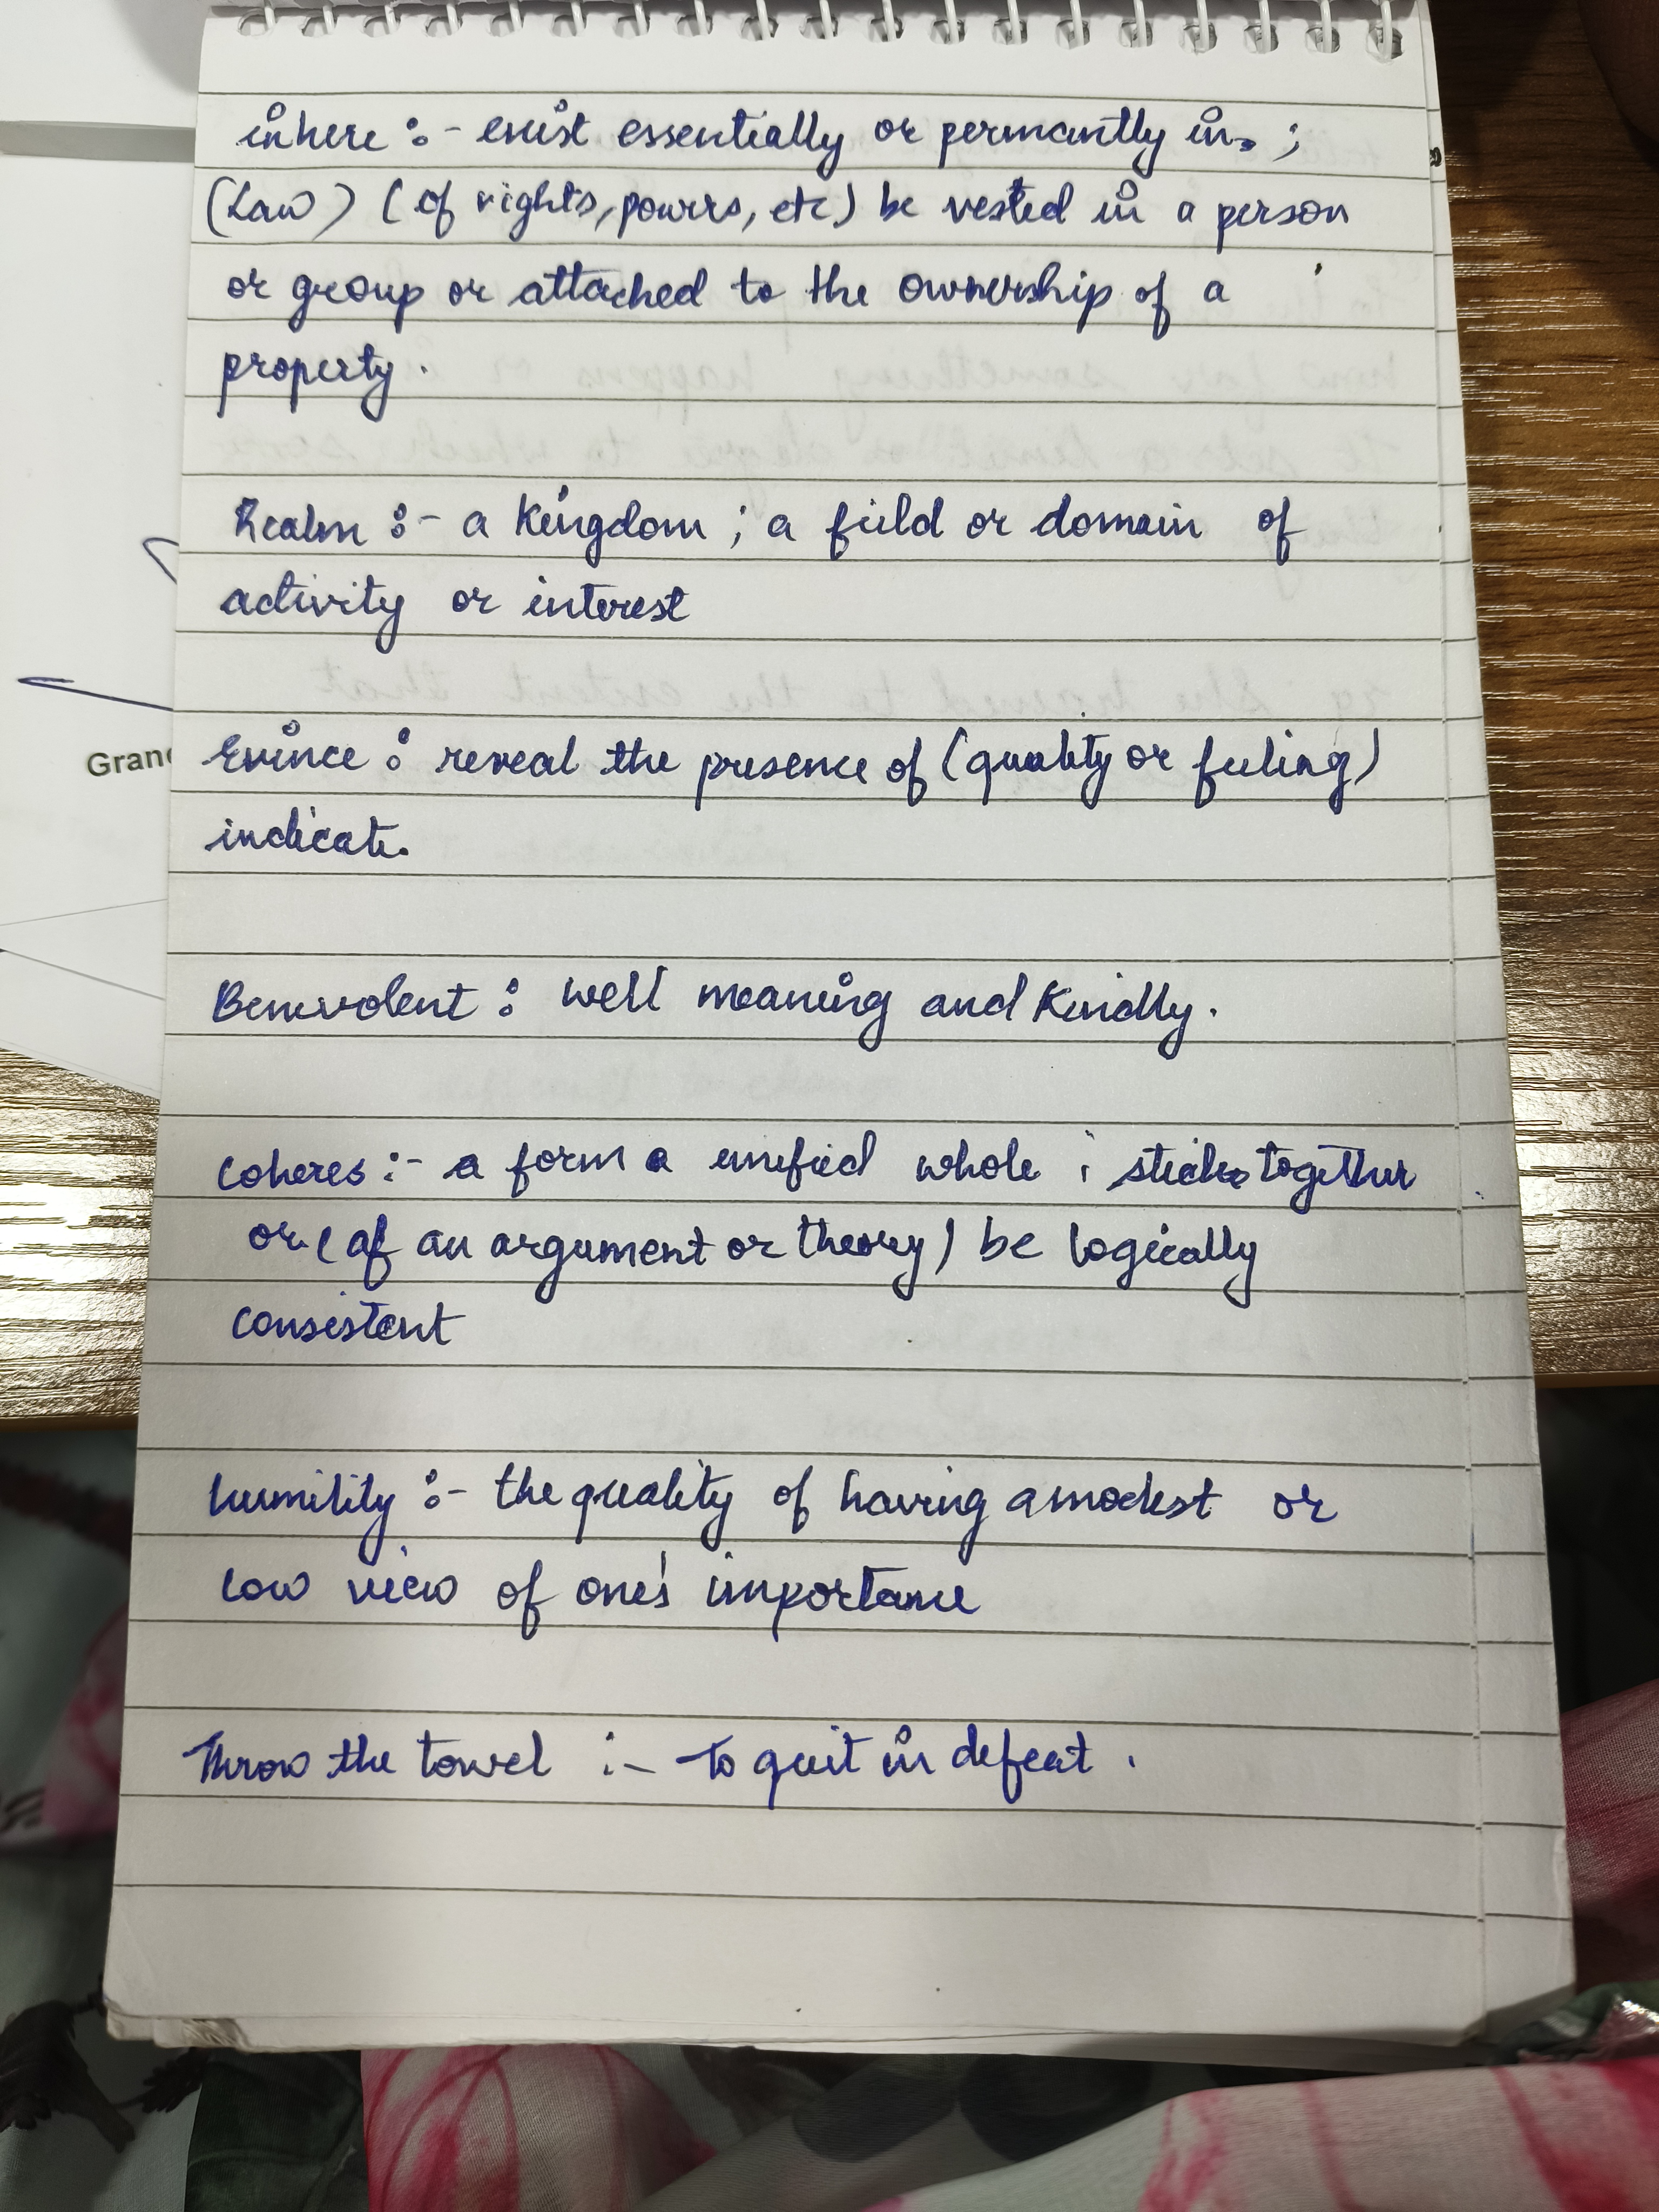 inhere :- exist essentially or permantly in. ;
(Law) (of rights, powers, etc) be vested in a person
or group or attached to the ownership of a
property.
Realm :- a Kingdom ; a field or domain of
activity or interest
Gran
Evince : reveal the presence of (quality or feeling)
indicate.
Benevolent : well meaning and Kindly.
Coheres :- a form a unified whole ; sticks together
or (of an argument or theory) be logically
consistent
humility :- the quality of having a modest or
low view of one's importance
Throw the towel :- To quit in defeat .